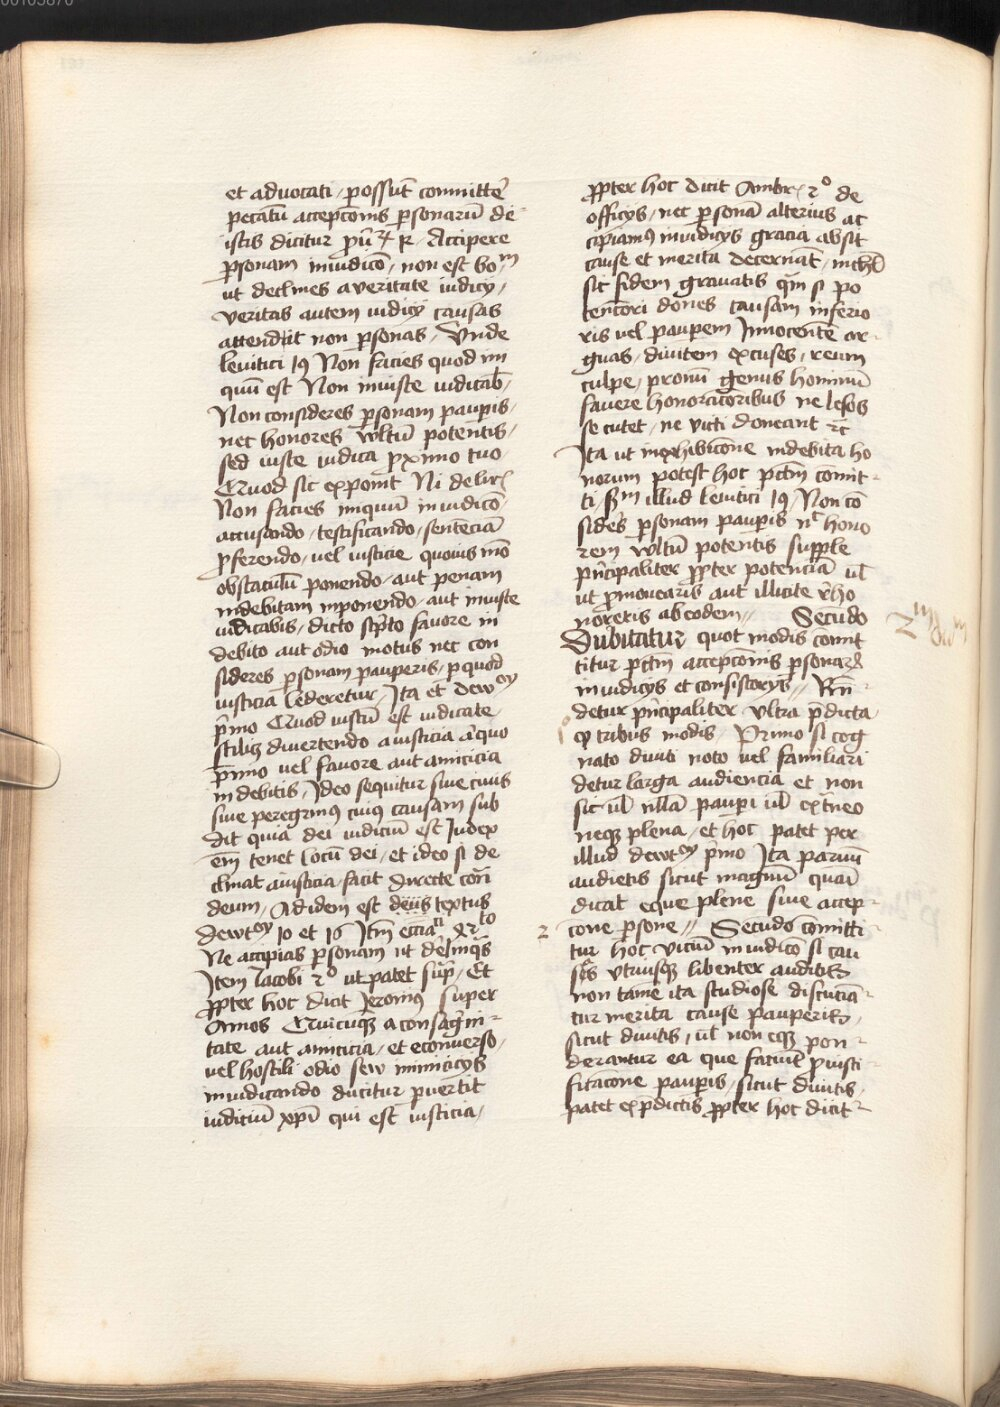 et advocati / possūt committe᷒
peccatū accepcōnis p̱sonarū de
istis dicitur Accipere
p̱sonam iniudicō / non est boᵐ
ut declines a veritate iudicij /
veritas autem iudicij causas
attendit non p̱sonas / Vnde
levitici 19 Non facies quod ini
quū est Non iniuste iudicab̄ /
Non consideres p̱sonam paup̱is /
nec honores wltū potentis /
sed iuste iudica pximo tuo /
Quod sic exponit Ni de lir
Non facies iniquū iniudicō
accusando / testificando / sentēciā
pferendo / vel iusticie quouis mō
obstaculū ponendo / aut penam
indebitam inponendo / aut iniuste
iudicabis / dicto sc̄pto fauore in
debito aut odio motus nec con
sideres p̱sonam pauperis / p̱ quod
iusticia lederetur / Ita et dewᵒʸ
p̄mo Quod iustū est iudicate
divertendo a iusticia aliquo
p̄mo vel fauore aut amicicia
indebitis / Ideo sequitur siue ciuis
siue peregrinꝰ cuiꝰ causam sub
dit quia dei iudiciū est Iudex
em̄ tenet locū dei / et ideo si de
clinat aiusticia facit directe cont̄
deum / Ad idem est textus
dewtᵒʸ 10 et 16 Itm̄ eccīa
Ne accipias p̱sonam ut delinq̄s
Item Jacobi 2ᵒ ut patet sup̄ / Et
ppter hoc dicit Jeronimꝰ super
Amos Quicūqꝫ a consagͥni-
tate aut amicicia / et econuerso /
vel hostili odio sew inimicicijs
iniudicando ducitur puertit
iudiciū xp̄i qui est iusticia /
ppter hoc dicit Ambrͦ 2ᵒ de
officijs / nec p̱sonā alterius ac
cipiamꝰ iniudicijs gracia absit
cause et merita decernāt / nichil
sic fidem grauatis qm̄ si po
tenciori dones causam inferio
ris vel paup̱em Innocentē ar-
guas / diuitem excuses / reum
culpe / pronū genus hominū
fauere honoracioribus ne lesos
se cutet / ne victi doneant ⁊c
Ita ut inexhibicōne indebita ho
norum potest hoc pctm̄ comit-
ti / sᵐ illud levitici 19 / Non cō
sides p̱sonam paup̱is nᶜ hono
rem wltū potentis supple
pn̄cipaliter ppter potenciā ul̄
ut pmouearis aut illicite
noreris ab eodem // Secūdo
Dubitatur quot modis comit
titur pctm̄ accepcōnis p̱sonarꝝ
iniudicijs et consistorijs // Rn̄-
detur pn̄cipaliter vltra p̄dicta
qꝫ tribus modis / Primo si cog
nato diuiti noto vel familiari
detur larga audiencia et non
sic ul̄ nllā paup̱i ul̄ ext͛neo
neqꝫ plena / et hoc patet per
illud dewtᵒʸ p̄mo Ita paruū
audietis sicut magnū quasi
dicat eque plene siue accep-
2 cone p̱sone // Secūdo cōmitti
tur hoc viciū iniudicō si cau
se vtriusqꝫ libenter auditis
non tamē ita studiose discuciā-
tur merita cause pauperis /
sicut diuitis / ul̄ non eqꝫ pon-
derantur ea que faciūt p̱ iusti
ficacōne paup̱is / sicut diuitis /
patet exp̄dictis ppter hoc dicit-